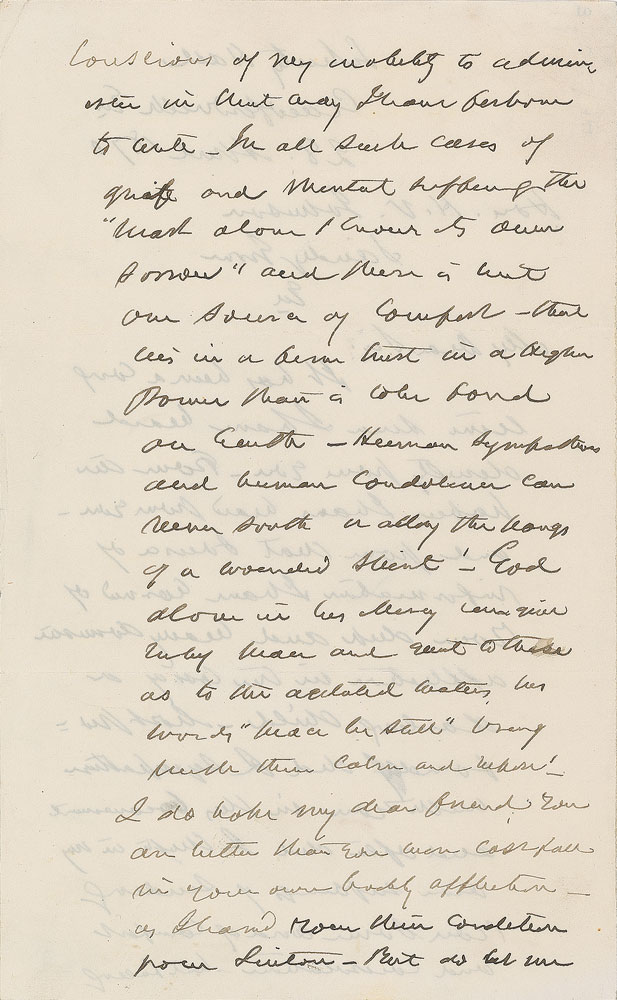 Conscious of my inability to admin-
ister in that way I have forborne
to write – In all such cases of
grief and mental suffering the
"heart alone knows its own
sorrow" and there is but
one source of comfort – that
lies in a firm trust in a higher
Power than is to be found
on Earth – Human sympathies
and human condolence can
never sooth or allay the pangs
of a wounded spirit! – God
alone in his Mercy can give
peace and quiet to these
as to the agitated waters, his
words "peace be still" bring
with them calm and repose! –
I do hope my dear friend you
are better than you were last fall
in your own bodily affliction –
as I learnd then their condition
from Linton – But do let me